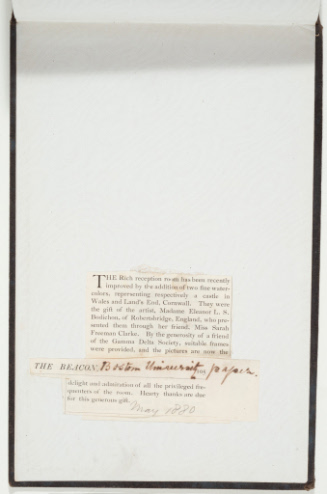 THE Rich reception room has been recently
improved by the addition of two fine water-
colors, representing respectively a castle in
Wales and Land's End, Cornwall. They were
the gift of the artist, Madame Eleanor L. S.
Bodichon, of Robertsbridge, England, who pre-
sented them through her friend, Miss Sarah
Freeman Clarke. By the generosity of a friend
of the Gamma Delta Society, suitable frames
were provided, and the pictures are now the
THE BEACON. Boston University paper.
delight and admiration of all the privileged fre-
quenters of the room. Hearty thanks are due
for this generous gift.
May 1880